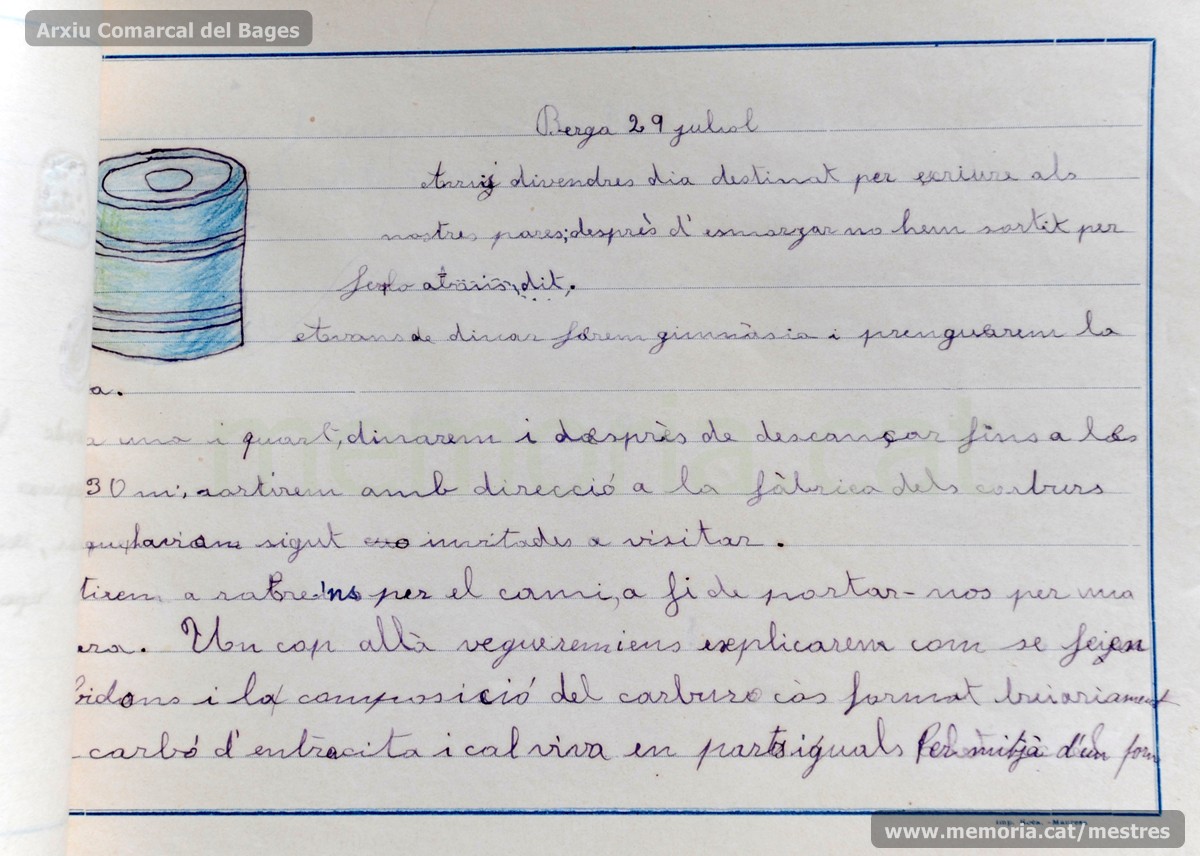 Arxiu Comarcal del Bages
Berga 29 juliol
Avuy divendres dia destinat per escriure als
nostres pares; desprès d'esmorzar no hem sortit per
ferlo dit.
Avans de dinar férem gimnàsia i prenguerem la
a.
a una i quart, dinarem i desprès de descançar fins a les
30 m; sortirem amb direcció a la fàbrica dels carburs
que haviam sigut invitades a visitar.
tirem a per el cami, a fi de portar-nos per una
era. Un cop allà vegueremiens explicarem com se fejen
bidons i la composició del carburo càs format
carbó d'entracita i cal viva en parts iguals Per mitjà d'un forn
memoria.cat
Imp. Roca. - Manresa
www.memoria.cat/mestres